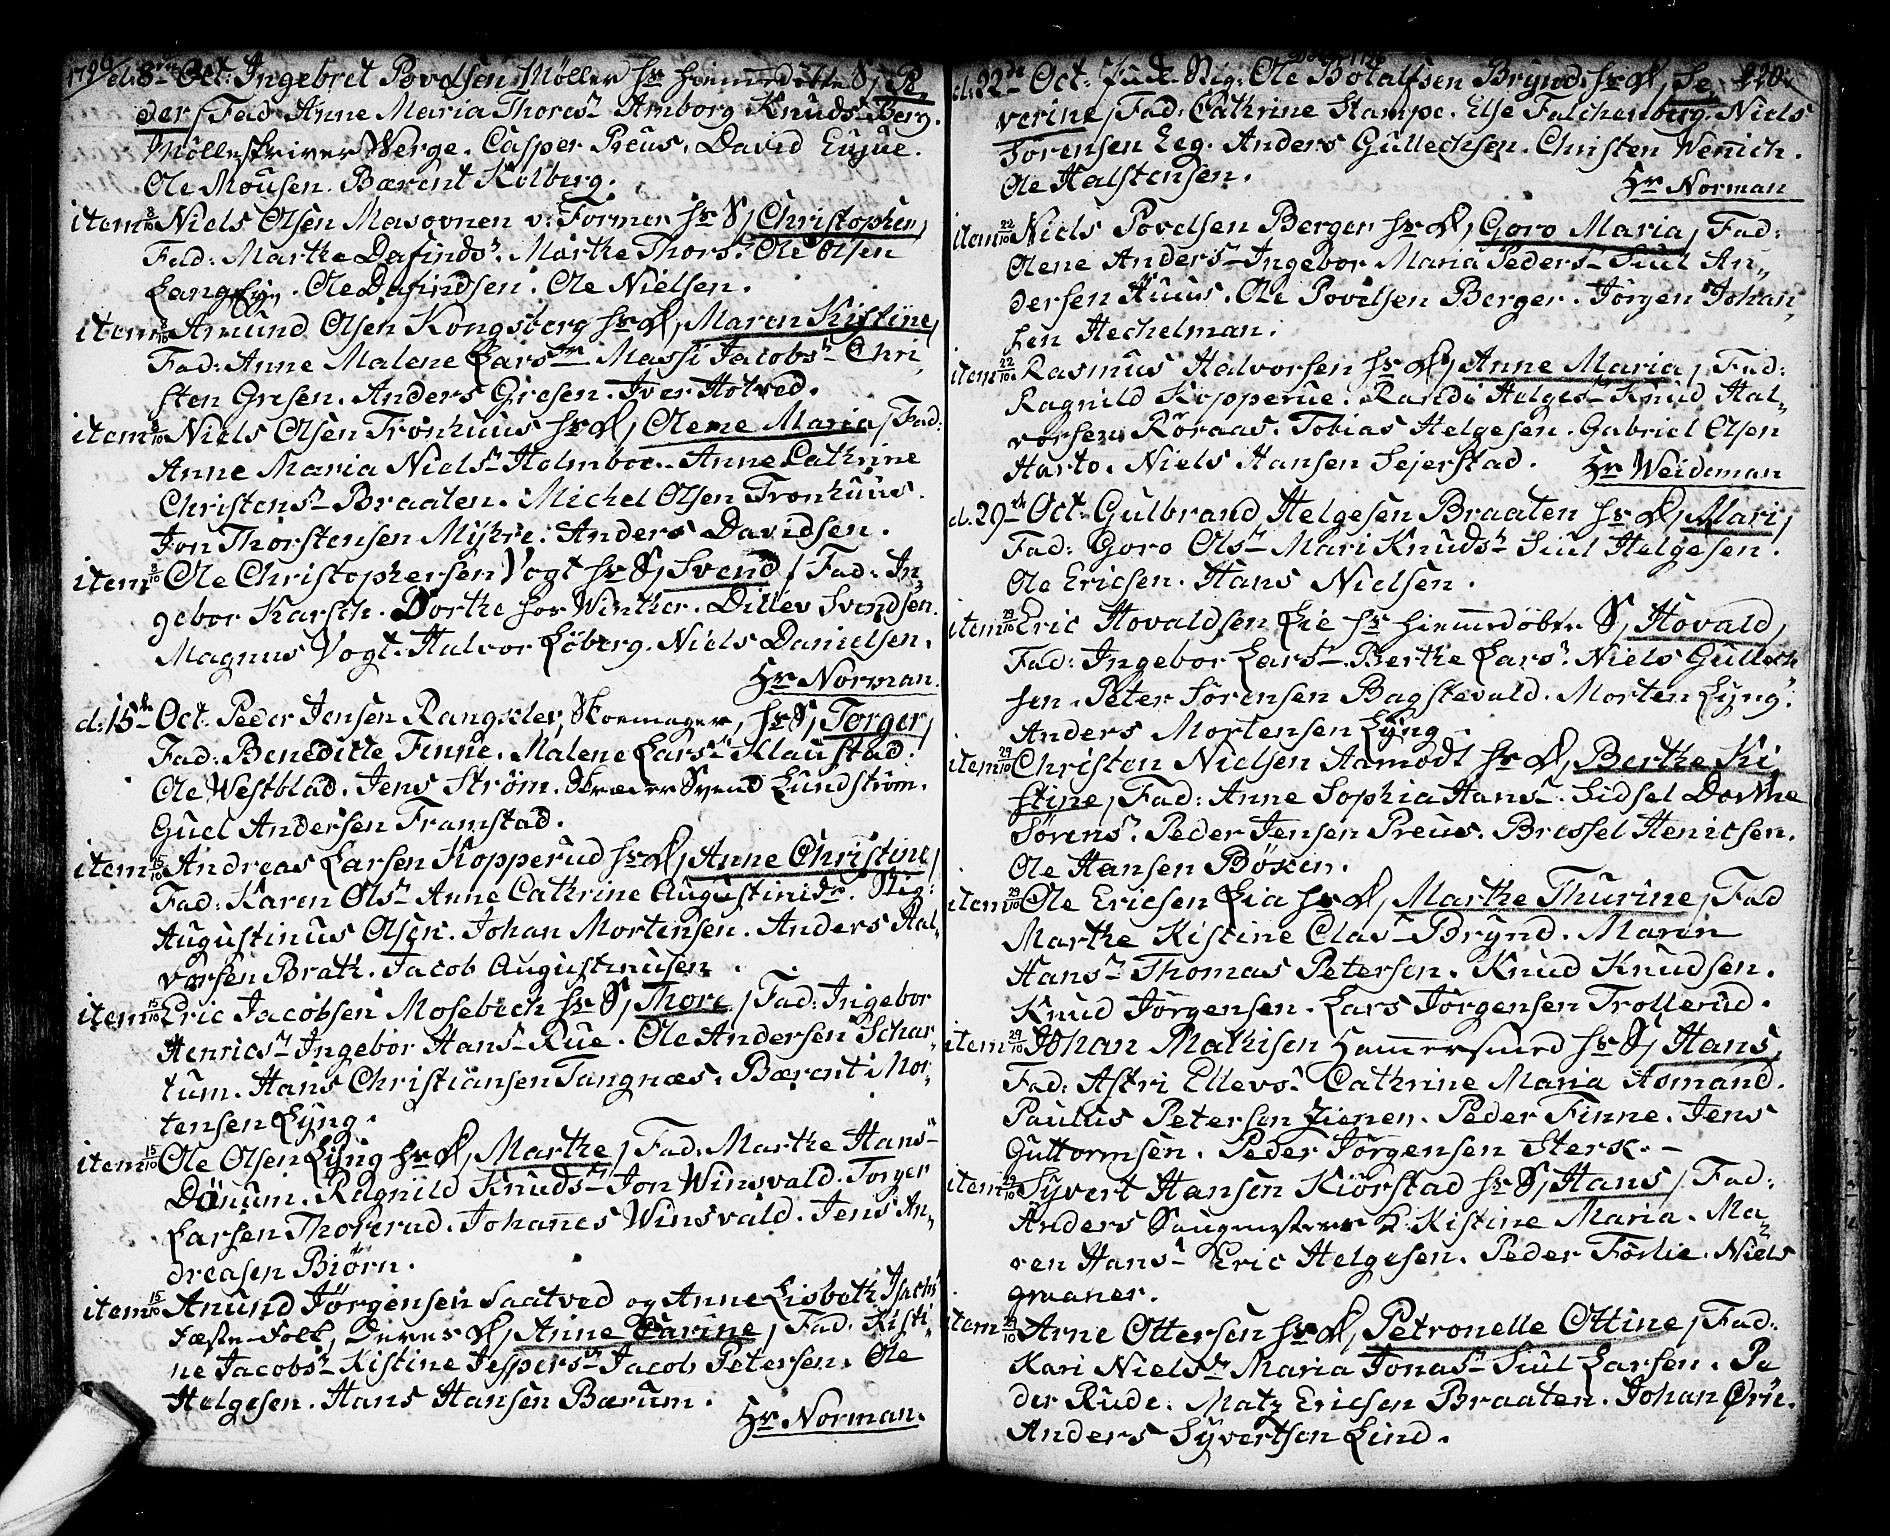 1796 d. 8de Oct: Ingebret Povelsen Møller hr hiemmedøbte S, Pe,
der, Fad Anne Maria Thoresn Amborg Knudsn Berg.
Mølleskriver Werge. Casper Preus. David
Ole Mousen. Bærent Kolberg.
item 8/10 Niels Olsen Masovnen v: Former hr S, Christopher,
Fad: Marthe Dafindsn. Marthe Thorsn Ole Olsen
Langelie. Ole Dafindsen. Ole Nielsen.
item 8/10 Amund Olsen Kongsberg hr D, Maren Kistine,
Fad: Anne Malene Larsdr Massi Jacobsn Chri,
sten Gresen. Anders Gresen. Iver Holved.
item 8/10 Niels Olsen Tronhuus hr D, Olene Maria, Fad:
Anne Maria Nielsn Holmboe. Anne Cathrine
Christensn Braaten. Michel Olsen Tronhuus.
Jon Thorstensen Myhre. Anders Davidsen.
item 8/10 Ole Christophersen Vogt hr S, Svend, Fad: In,
gebor Karsch. Dorthe Winther. Ditlev Svendsen.
Magnus Vogt. Halvor Løberg. Niels Danielsen.
Hr Norman.
d: 15de Oct. Peder Jensen Rangseler, Skoemager, hr S, Torger,
Fad: Beneditte Finne. Malene Larsn Klaustad.
Ole Westblad. Jens Strøm. Skræder Svend Lundstrøm.
Guel Andersen Framstad.
item 15/10 Andreas Larsen Kopperud hr D, Anne Christine,
Fad: Karen Olsn Anne Cathrine Augustinidr. Stig:
Augustinus Olsen. Johan Mortensen. Anders Hal,
vorsen Brath. Jacob Augustinusen.
item 15/10 Eric Jacobsen Mosebech hr S, Thore, Fad: Ingebor
Henricsn Ingebor Hansn Rue. Ole Andersen Schar,
tum. Hans Christiansen Tangnæs. Bærent Mor,
tensen Lyng.
item 15/10 Ole Olsen Lyng hr D, Marthe, Fad: Marthe Hansn
Dønum. Ragnild Knudsn Jon Winsvald. Torger
Larsen Thorerud. Johannes Winsvald. Jens An,
dreasen Biørn.
item 15/10 Anund Jørgensen Saatved og Anne Lisbeth Isachsn
Fæste-Folk, Deres D, Anne Carine, Fad: Kisti,
ne Jacobsn Kistine Jespersdr Jacob Petersen. Ole
Helgesen. Hans Hansen Bærum.
Hr Norman.
220.
d. 22de Oct. Stig: Ole Botolfsen Brynd hr D, Se,
verine, Fad: Cathrine Stampe. Else Falchenberg. Niels
Sørensen Eeg. Anders Gullechsen. Christen Wenich.
Ole Halstensen.
Hr Norman
item 22/10 Niels Povelsen Berger hr D, Goro Maria, Fad:
Olene Andersn Ingebor Maria Pedersn Juul An,
dersen Huus. Ole Povelsen Berger. Jørgen Johan,
sen Hechelman.
item 22/10. Rasmus Halvorsen hr D, Anne Maria, Fad:
Ragnild Kopperue. Randi Helgesn Knud Hal,
vorsen Røraas. Tobias Helgesen. Gabriel Olsen
Harto. Niels Hansen Sejerstad.
Hr Weideman
d. 29de Oct. Gulbrand Helgesen Braaten hr D, Mari,
Fad: Goro Olsn Mari Knudsn Juul Helgesen.
Ole Ericsen. Hans Nielsen.
item 29/10 Eric Hovaldsen Lie hr hiemmedøbte S, Hovald,
Fad: Ingebor Larsn Berthe Larsn. Niels Gullech
sen. Peter Sørensen Bagstevald. Morten Lyng.
Anders Mortensen Lyng.
item 29/10 Christen Nielsen Aamodt hr D, Berthe Ki
stine, Fad: Anne Sophia Hansn. Sidsel Dorthe
Sørensn. Peder Jensen Preus. Bressel Henicsen.
Ole Hansen Bøken.
item 29/10 Ole Ericsen Lia hr D, Marthe Thurine, Fad
Marthe Kistine Clasn Brynd. Maren
Hansn Thomas Petersen. Knud Knudsen.
Knud Jørgensen. Lars Jørgensen Trollerud.
item 29/10 Johan Mathisen Hamersmed hr S, Hans,
Fad: Astri Ellevsn Cathrine Maria Asmand.
Paulus Petersen Zienen. Peder Finne. Jens
Guttormsen. Peder Jørgensen Sterk. -
item 29/10 Syvert Hansen Kiørstad hr S, Hans, Fad:
Anders Saugmesters D. Kistine Maria. Ma,
ren Hansn Eric Helgesen. Peder Førlie. Niels
gruaner.
item 29/10 Arne Ottersen hr D, Petronelle Ottine, Fad:
Kari Nielsdr Maria Jonasn Juul Larsen. Pe
der Rude. Matz Ericsen Braaten. Johan Ørn.
Anders Syvertsen Lind.